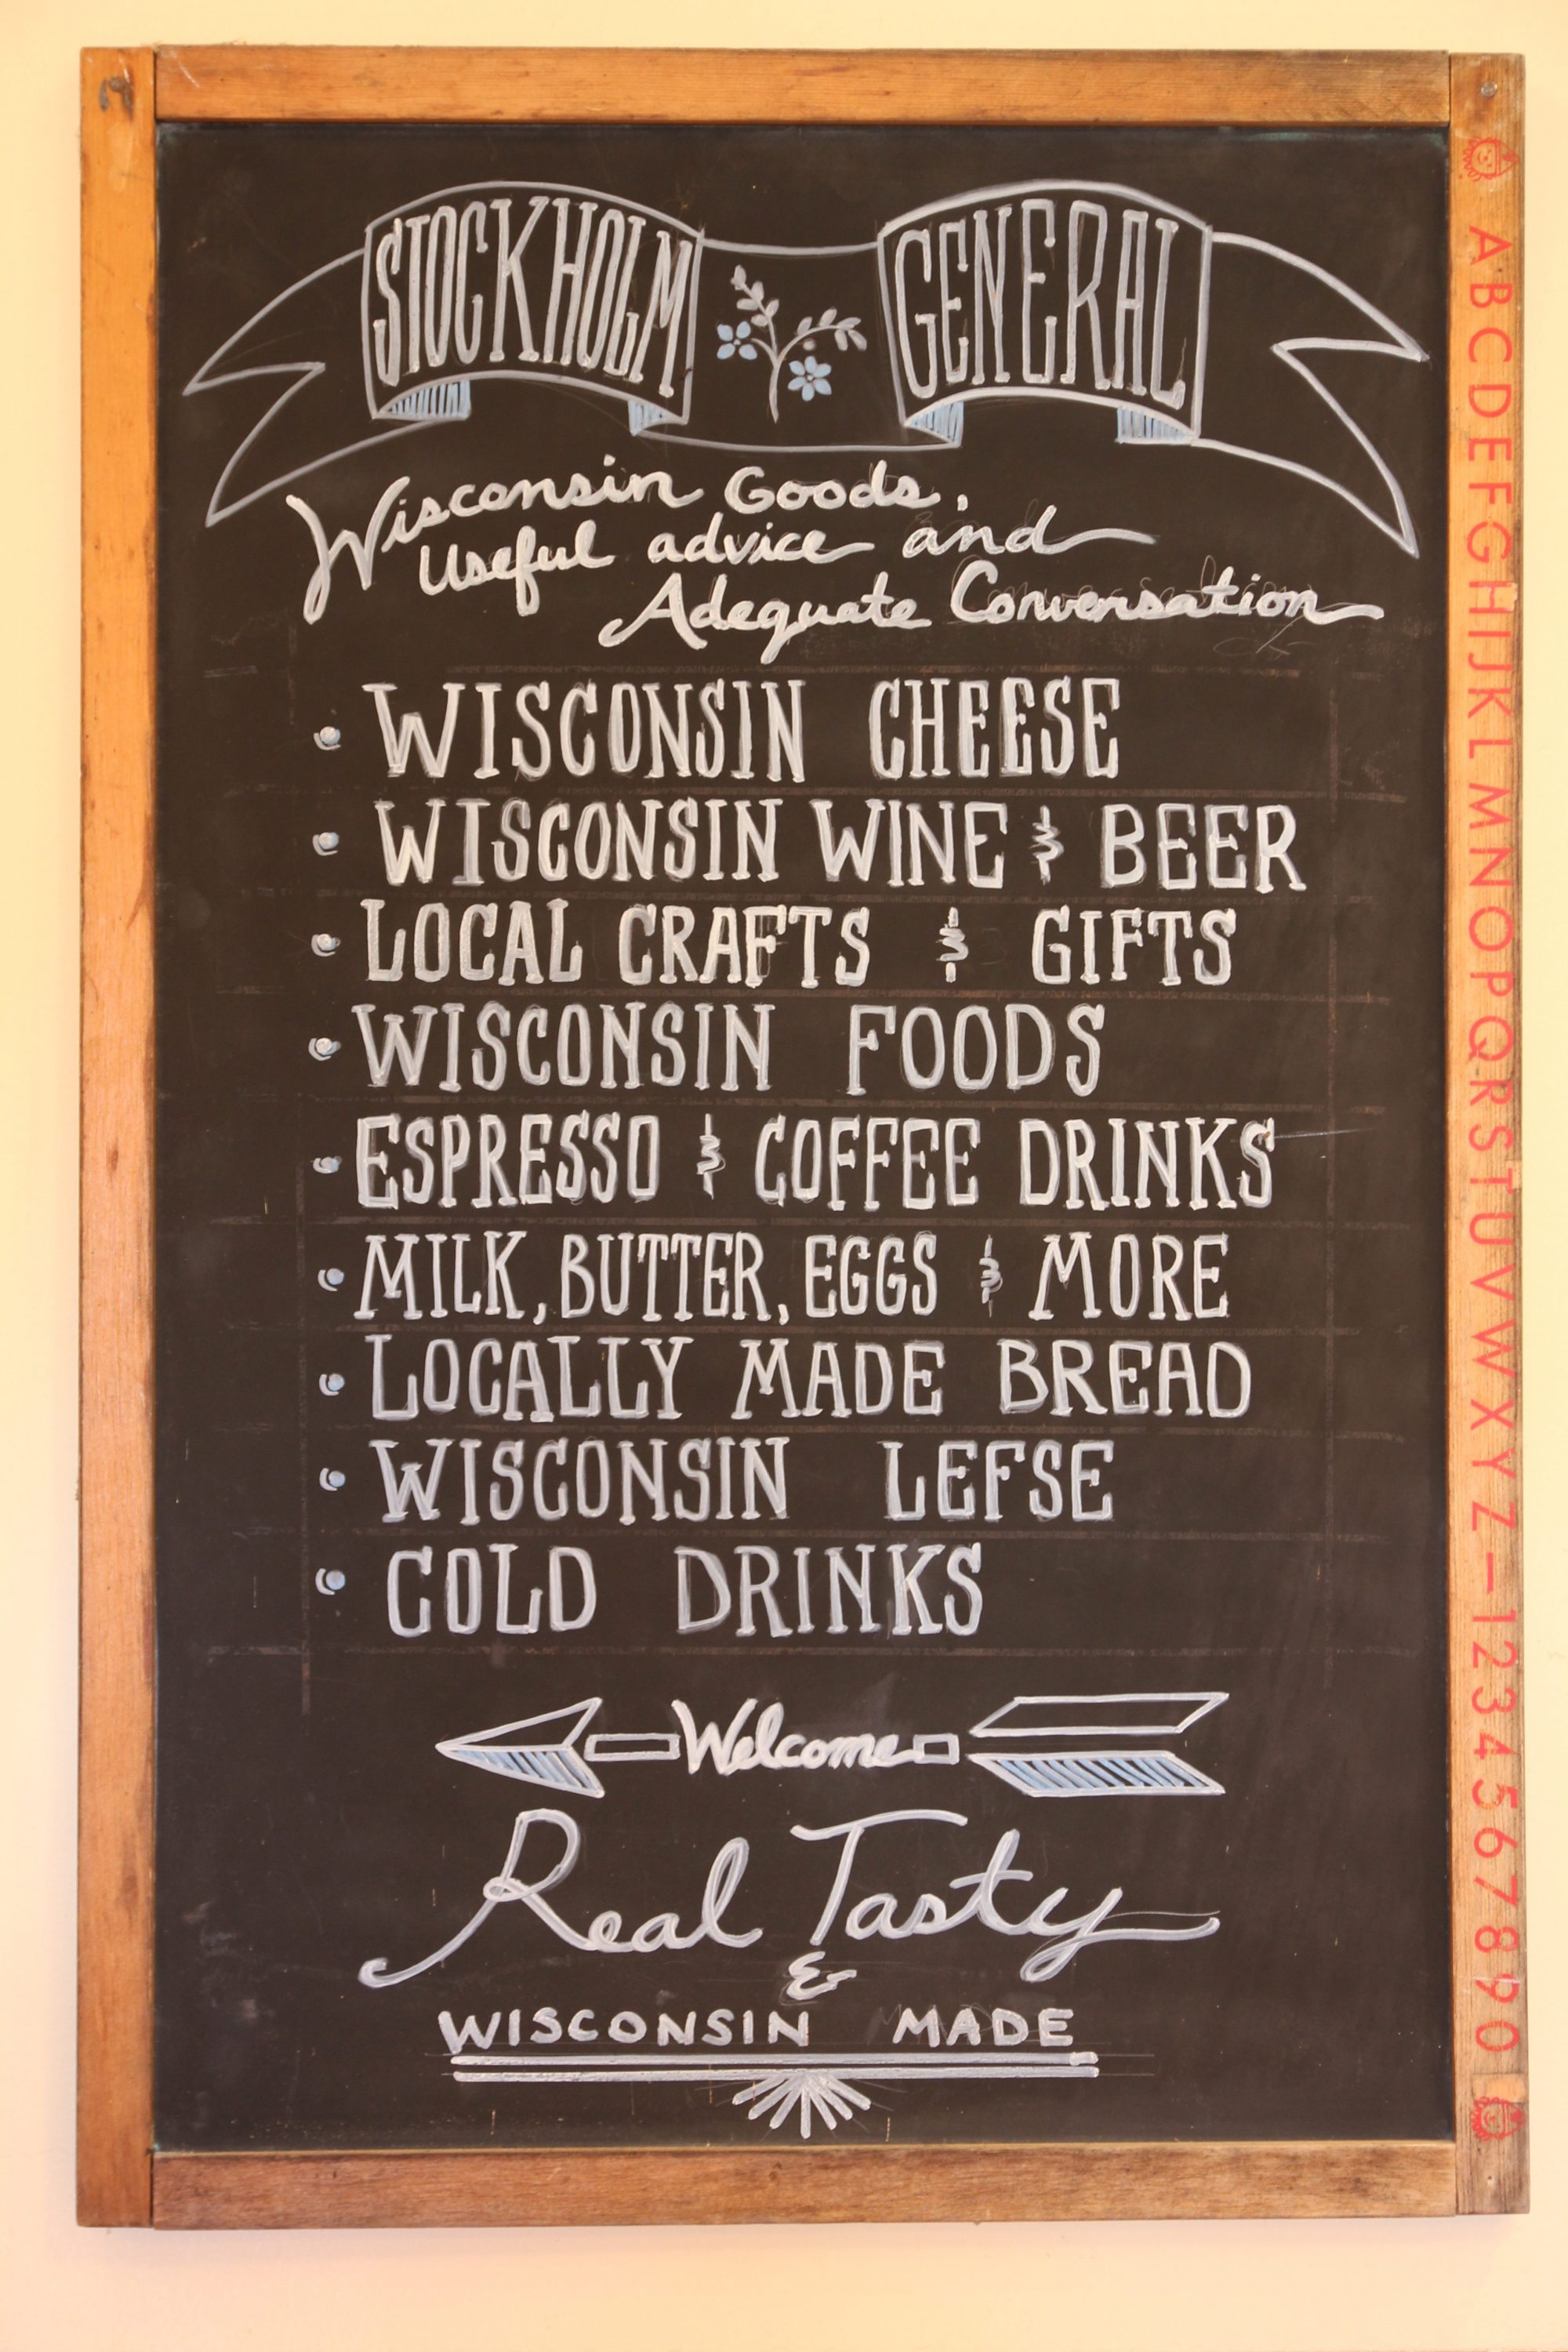 STOCKHOLM GENERAL
Wisconsin Goods,
Useful advice and
Adequate Conversation
• WISCONSIN CHEESE
• WISCONSIN WINE & BEER
• LOCAL CRAFTS & GIFTS
• WISCONSIN FOODS
• ESPRESSO & COFFEE DRINKS
• MILK, BUTTER, EGGS & MORE
• LOCALLY MADE BREAD
• WISCONSIN LEFSE
• COLD DRINKS
Welcome
Real Tasty
&
WISCONSIN MADE
ABCDEFGHIJKLMNOPQRSTUVWXYZ–1234567890